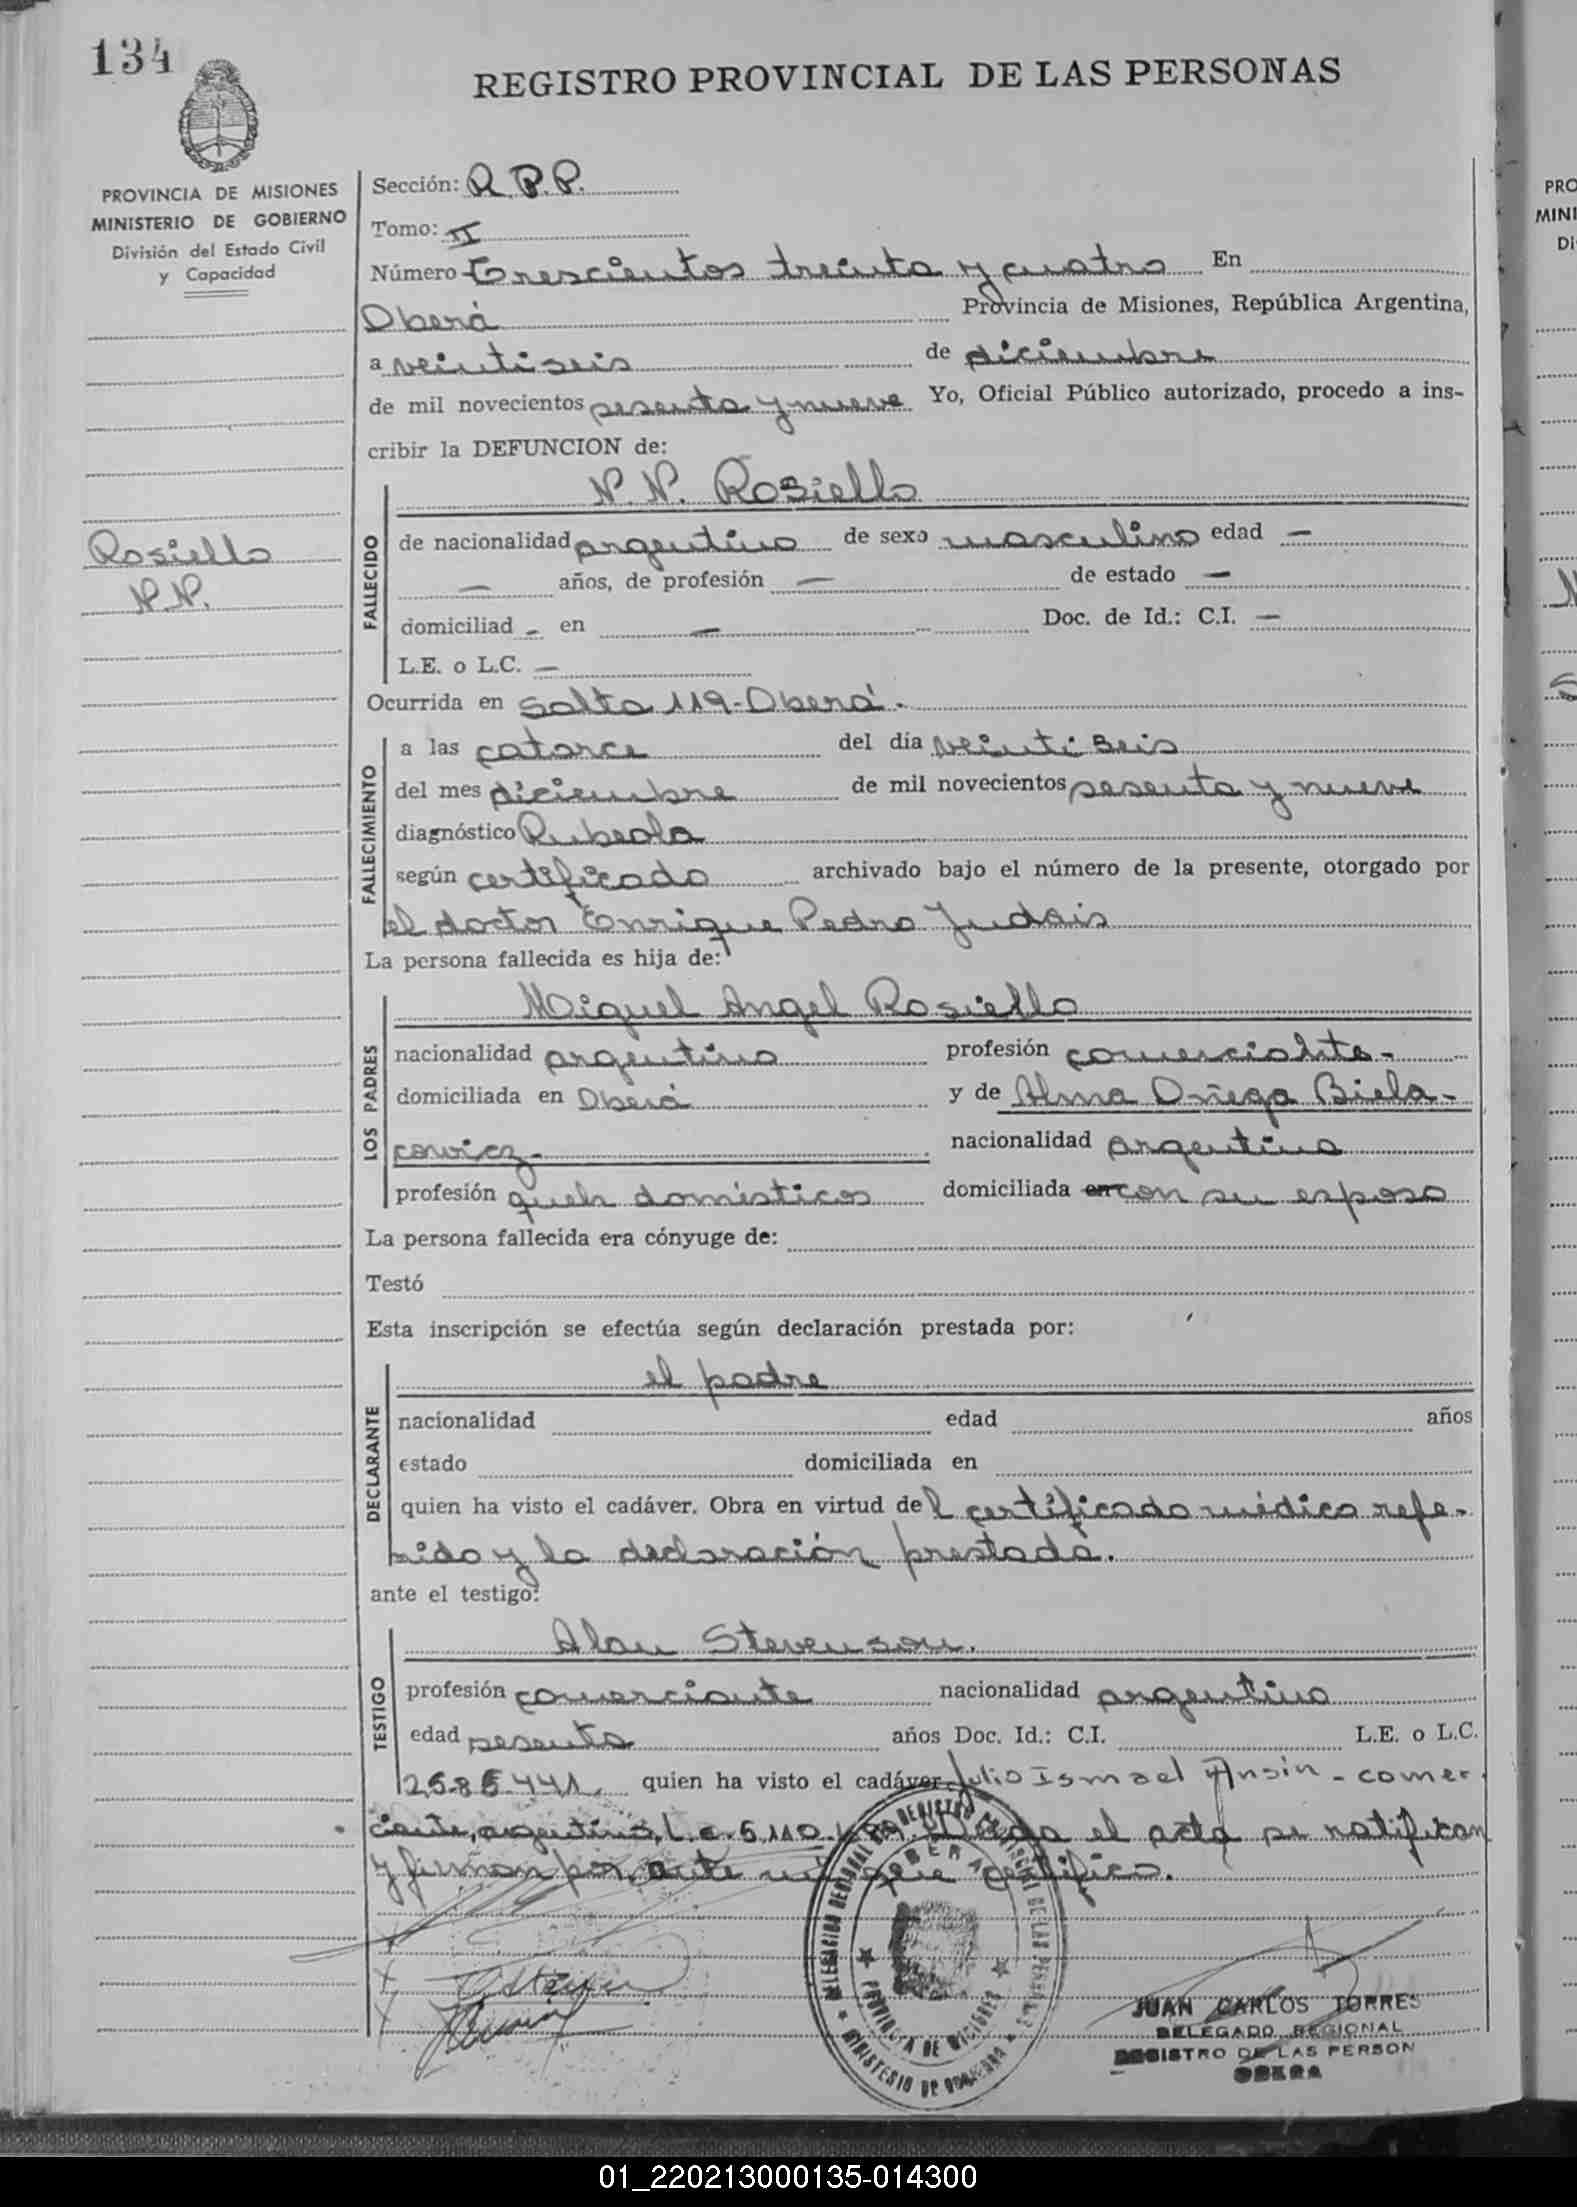 134
REGISTRO PROVINCIAL DE LAS PERSONAS
PROVINCIA DE MISIONES
MINISTERIO DE GOBIERNO
División del Estado Civil
y Capacidad
Rosiello
N.N.
Sección: R.P.P.
Tomo: II
Número Trescientos treinta y cuatro En
Oberá Provincia de Misiones, República Argentina,
a veintiseis de diciembre
de mil novecientos sesenta y nueve Yo, Oficial Público autorizado, procedo a ins-
cribir la DEFUNCION de:
FALLECIDO
N.N. Rosiello
de nacionalidad argentino de sexo masculino edad —
— años, de profesión — de estado —
domiciliad - en — Doc. de Id.: C.I. —
L.E. o L.C. —
Ocurrida en Salta 119-Oberá.
FALLECIMIENTO
a las catorce del día veintiseis
del mes diciembre de mil novecientos sesenta y nueve
diagnóstico Rubeola
según certificado archivado bajo el número de la presente, otorgado por
el doctor Enrique Pedro Judais
La persona fallecida es hija de:
LOS PADRES
Miguel Angel Rosiello
nacionalidad argentino profesión
domiciliada en Oberá y de Alma Oñega Biela-
cowicz- nacionalidad argentina
profesión queh domésticos domiciliada en con su esposo
La persona fallecida era cónyuge de:
Testó
Esta inscripción se efectúa según declaración prestada por:
DECLARANTE
el padre
nacionalidad edad años
estado domiciliada en
quien ha visto el cadáver. Obra en virtud del certificado médico refe-
rido y la declaración prestada.
ante el testigo:
TESTIGO
Alan Stevenson.
profesión comerciante nacionalidad argentino
edad sesenta años Doc. Id.: C.I. L.E. o L.C.
2.585.441. quien ha visto el cadáver. Julio Ismael Ansin - comer-
ciante, argentino, L.e. 5.110. el acta se ratifican
y firman por ante mí que certifico.
DELEGACION REGIONAL DEL REGISTRO PROVINCIAL DE LAS PERSONAS
OBERA
PROVINCIA DE MISIONES
MINISTERIO DE GOBIERNO
JUAN CARLOS TORRES
DELEGADO REGIONAL
REGISTRO DE LAS PERSON
OBERA
PRO
MINI
Di
01_220213000135-014300